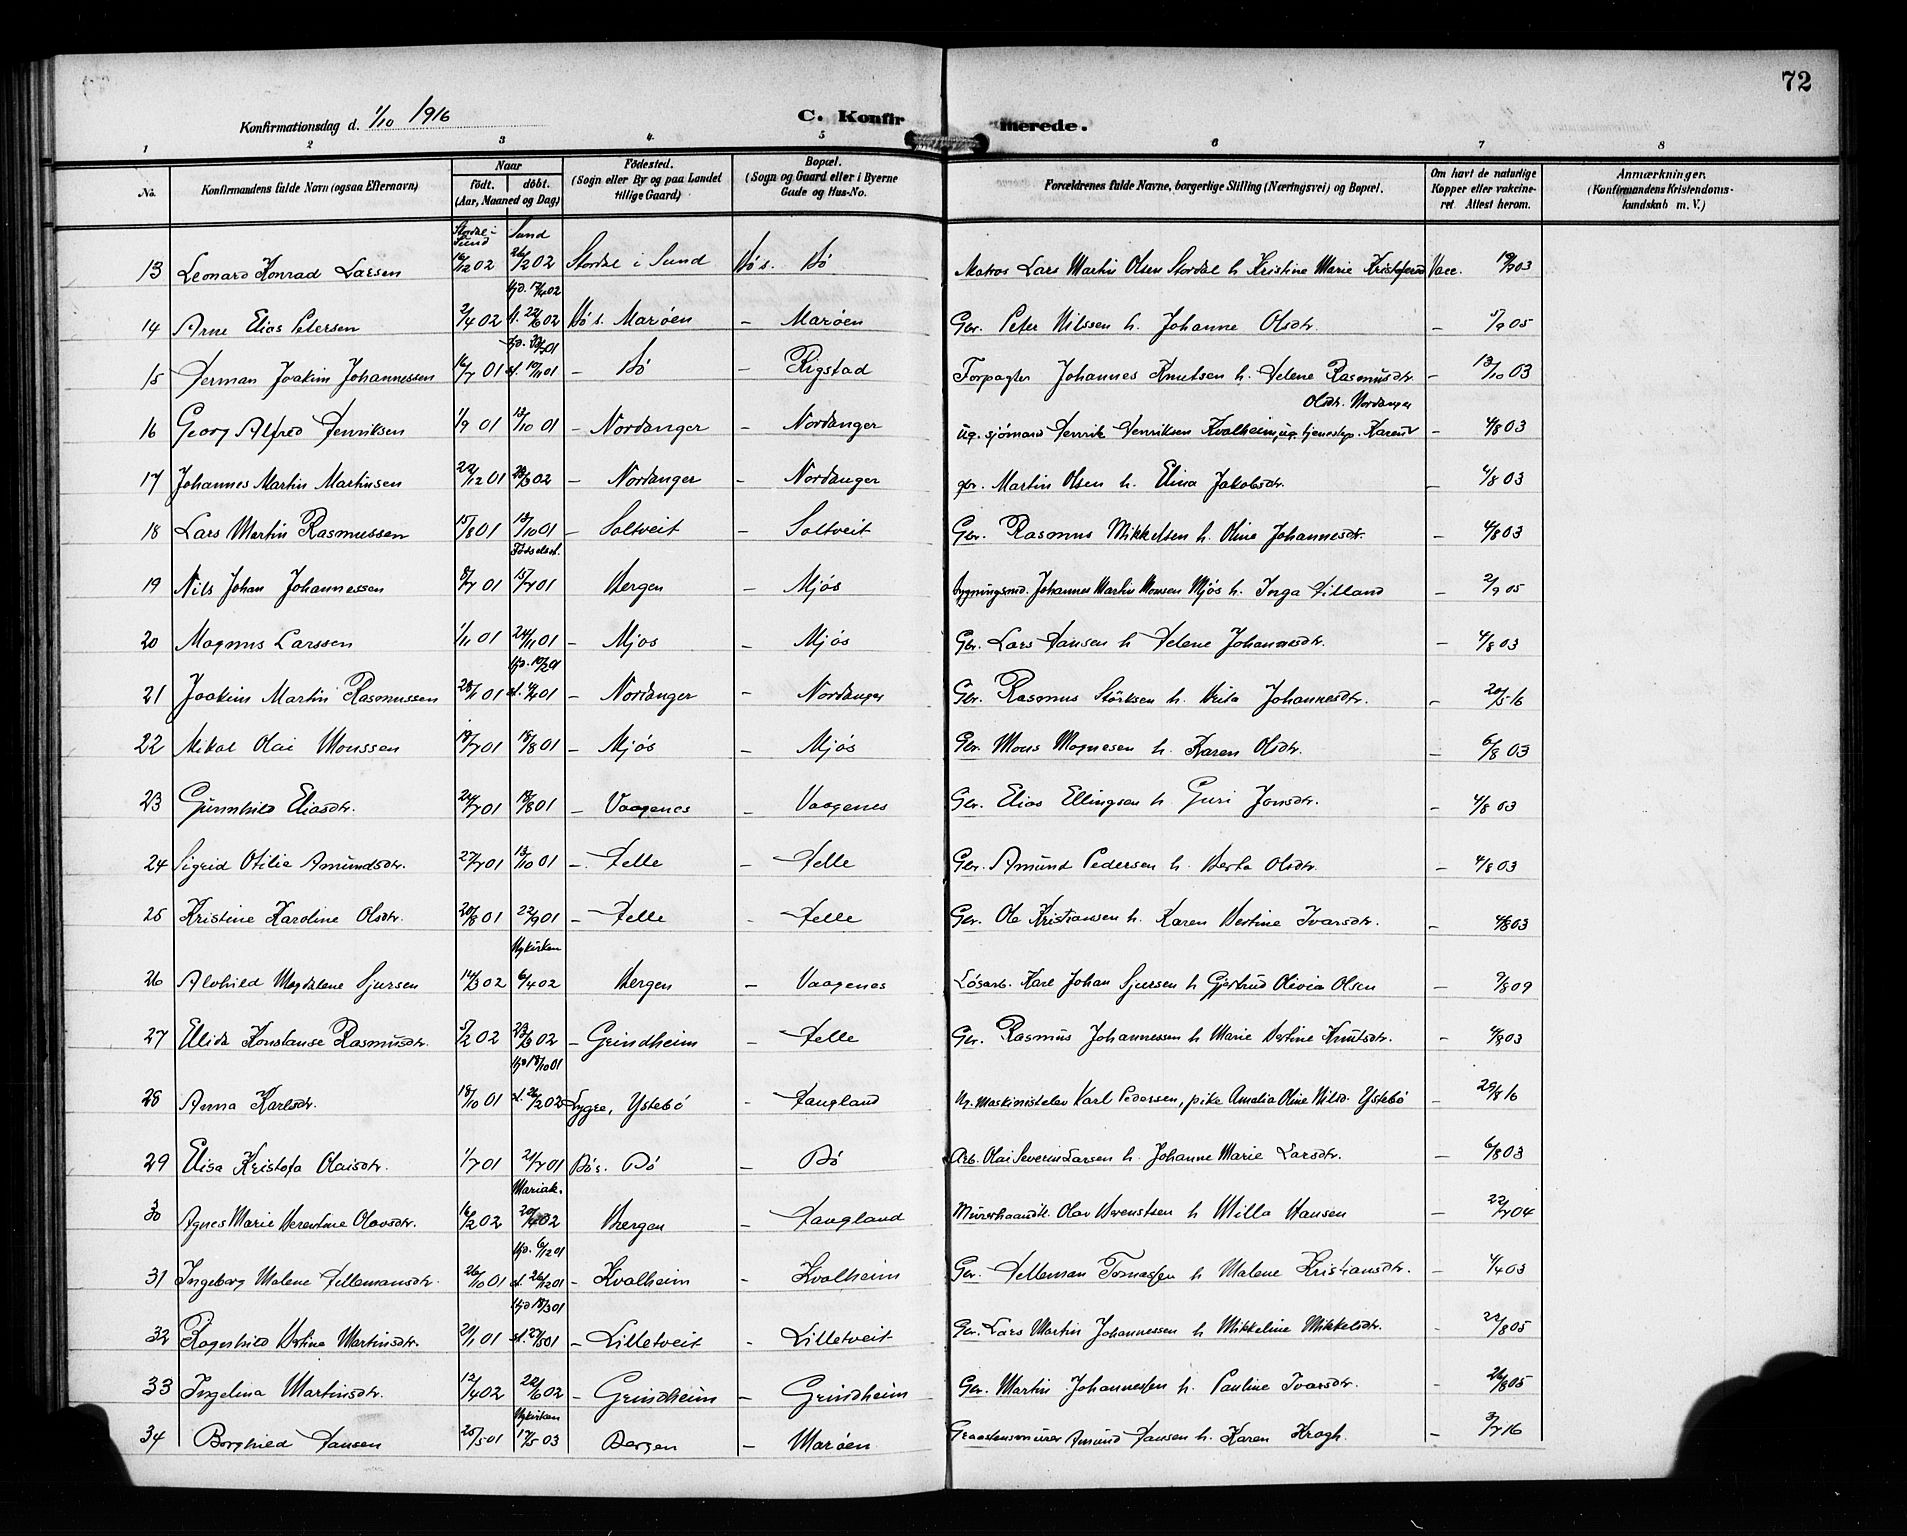 72
Konfirmationsdag d. 1/10 1916
C. Konfirmerede.
1 2 3 4 5 6 7 8
No. Konfirmandens fulde Navn (ogsaa Efternavn)
Naar født. døbt. (Aar, Maaned og Dag)
Fødested. (Sogn eller By og paa Landet tillige Gaard)
Bopæl. (Sogn og Gaard eller i Byerne Gade og Hus-No.
Forældrenes fulde Navne, borgerlige Stilling (Næringsvei) og Bopæl.
Om havt de naturlige Kopper eller vakcineret. Attest herom.
Anmærkninger. (Konfirmandens Kristendomskundskab m. V.)
Stordal i Sund Sund
13 Leonard Konrad Larsen 16/12 02 26/2 02 Stordal i Sund Bø s. Bø Matros Lars Martin Olsen Stordal h. Kristine Marie Vacc.
14 Arne Elias Petersen 2/4 02 st. 22/6 02 Bø s. Marøen – Marøen Gbr. Peter Nilssen h. Johanne Olsdtr. – 5/9 05
15 Herman Joakim Johannessen 16/7 01 – Bø – Rigstad Forpagter Johannes Knutsen h. Helene Rasmusdtr. – 13/10 03
Olsdtr. Nordanger
16 Georg Alfred Henriksen 1/9 01 13/10 01 – Nordanger – Nordanger ug. sjömand Henrik Henriksen Kvalheim, ug. tjenestep. Karen – 4/8 03
17 Johannes Martin Martinsen 22/12 01 – Nordanger – Nordanger gbr. Martin Olsen h. Elina Jakobsdtr. – 4/8 03
18 Lars Martin Rasmussen 15/8 01 13/10 01 – Soltveit – Soltveit Gbr. Rasmus Mikkelsen h. Oline Johannesdtr. – 4/8 03
Fødselsst.
19 Nils Johan Johannessen 8/7 01 15/7 01 Bergen – Mjøs Bygningssnd. Johannes Martin Monsen Mjøs h. Inga Hilland – 2/9 05
20 Magnus Larssen 1/11 01 24/11 01 – Mjøs – Mjøs Gbr. Lars Hansen h. Helene Johannesdtr. – 4/8 03
21 Joakim Martin Rasmussen – Nordanger – Nordanger Gbr. Rasmus Störksen h. Brita Johannesdtr. – 20/5 16
22 Mikal Olai Monssen 19/7 01 18/8 01 – Mjøs – Mjøs Gbr. Mons Magnesen h. Karen Olsdtr. – 6/8 03
23 Gunnhild Eliasdtr. 24/7 01 18/8 01 – Vaagenes – Vaagenes Gbr. Elias Ellingsen h. Guri Jonsdtr. – 4/8 03
24 Sigrid Otilie Amundsdtr. 27/7 01 13/10 01 – Helle – Helle Gbr. Amund Pedersen h. Berta Olsdtr. – 4/8 03
25 Kristine Karoline Olsdtr. 20/8 01 22/9 01 – Helle – Helle Gbr. Ole Kristiansen h. Karen Bertine Ivarsdtr. – 4/8 03
Nykirken
26 Alvhild Magdalene Sjursen 14/3 02 6/4 02 Bergen – Vaagenes Løsarb. Karl Johan Sjursen h. Gjertrud Olivia Olsen – 9/8 09
27 Elida Konstanse Rasmusdtr. 5/2 02 23/3 02 – Grindheim – Helle Gbr. Rasmus Johannessen h. Marie Bertine Knutsdtr. – 4/8 03
hjd 18/10 01
28 Anna Karlsdtr. 18/10 01 st. 26/2 02 Lygre, Ystebø – Haugland Ug. Maskinistelev Karl Pedersen, pike Amalia Oline Nilsd. Ystebø – 29/8 16
29 Elisa Kristofa Olaisdtr. 1/7 01 21/7 01 Bø s. Bø – Bø Arb. Olai Severin Larsen h. Johanne Marie Larsdtr. – 6/8 03
Mariak.
30 Agnes Marie Berentine Olavsdtr. 16/2 02 20/4 02 Bergen – Haugland Murerhaandtl. Olav Berentsen h. Milla Hansen – 22/7 04
hjd. 6/12 01
31 Ingeborg Malene Tellemansdtr. 26/10 01 st. 26/12 01 – Kvalheim – Kvalheim Gbr. Telleman Tomassen h. Malene Kristiansdtr. – 4/4 03
hjd 18/3 01
32 Ragnhild Bertine Martinsdtr. 21/1 01 st. 27/5 01 – Lilletveit – Lilletveit Gbr. Lars Martin Johannessen h. Mikkeline Mikkelsdtr. – 22/8 05
33 Ingelina Martinsdtr. 12/4 02 22/6 02 – Grindheim – Grindheim Gbr. Martin Johannessen h. Pauline Ivarsdtr. – 26/8 05
Nykirken
34 Borghild Hansen 25/5 01 17/5 03 Bergen – Marøen Graastensmurer Amund Hansen h. Karen Krogh. – 3/7 16